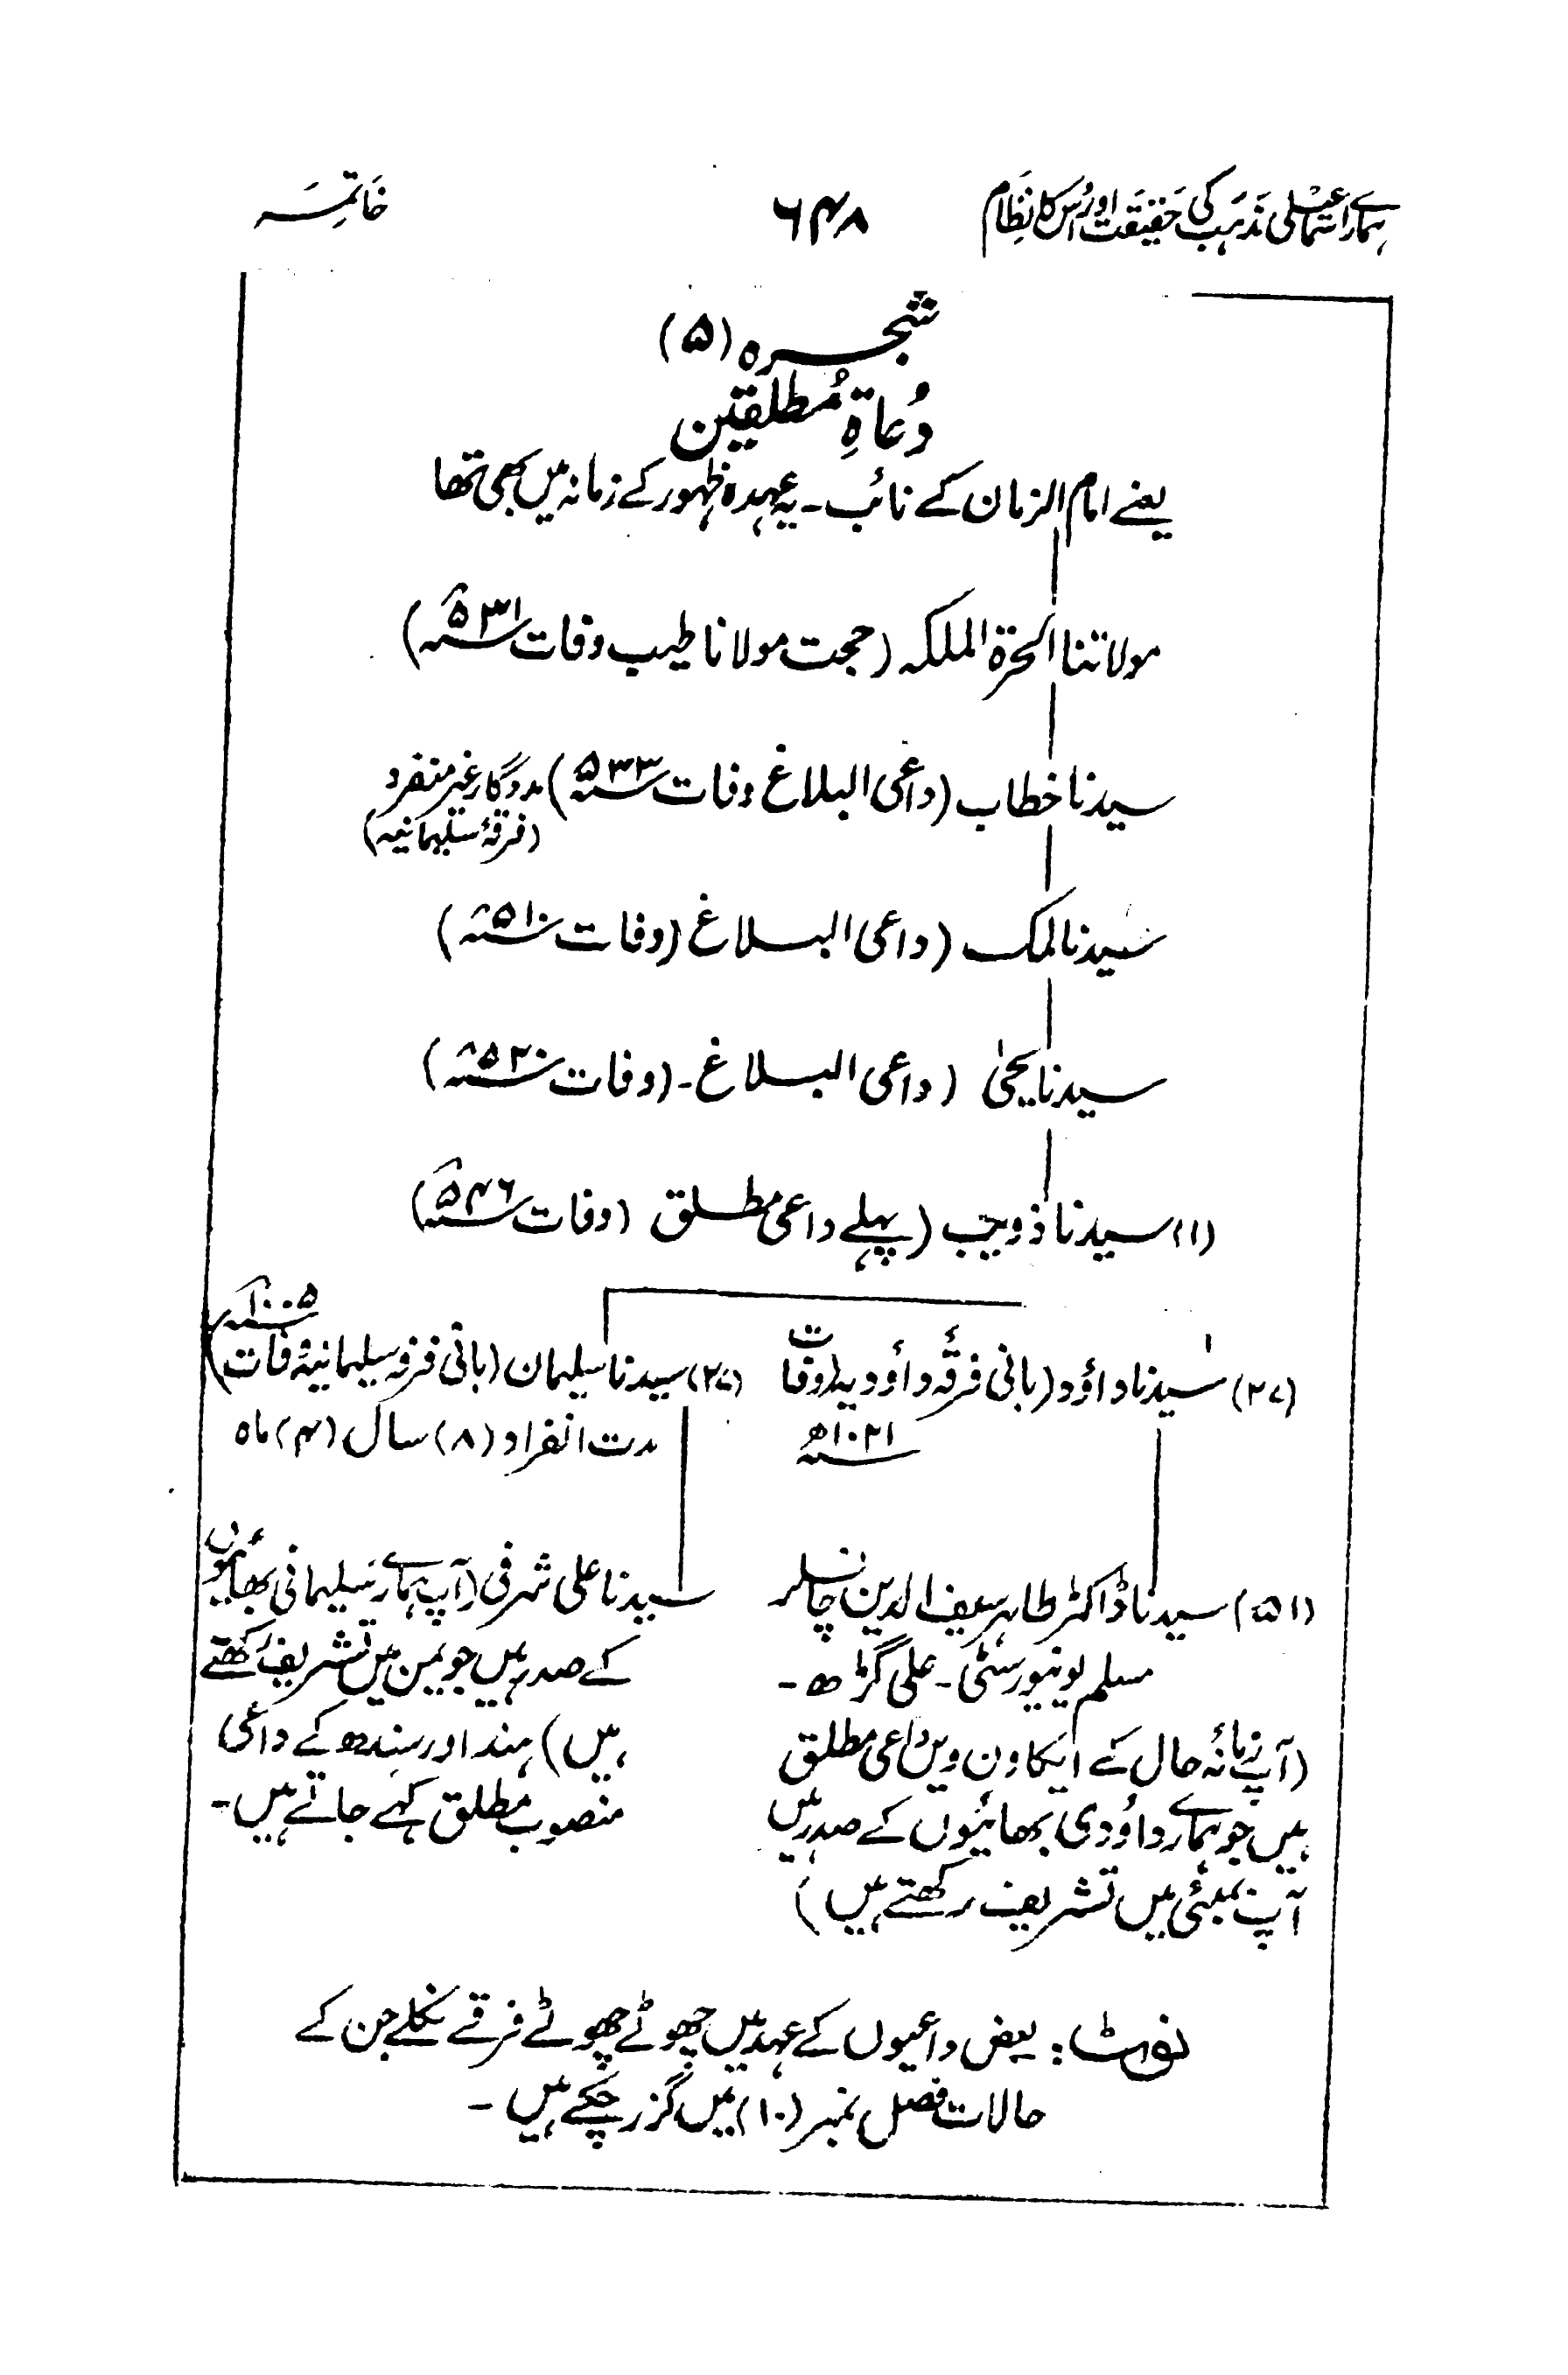 ہمارے اسماعیلی مذہب کی حقیقت اور اس کا نظام ۶۴۸ خاتمہ
شجرہ (۵)
دُعاۃِ مُطلقین
یعنے امام الزمان کے نائب ۔ یہ عہدہ ظہور کے زمانہ میں بھی تھا
مولاتنا الحرۃ الملکہ (حجت مولانا طیب وفات ۵۳۱ھ)
سیدنا خطاب (داعی البلاغ وفات ۵۳۳ھ) مددگار غیر منفرد
(فرقۂ سلیمانیہ)
سیدنا لمک (داعی البلاغ (وفات ۵۱۰ھ)
سیدنا یحییٰ (داعی البلاغ ۔ (وفات ۵۲۰ھ)
(۱) سیدنا ذویب (پہلے داعی مطلق (وفات ۵۴۶ھ)
(۲۷) سیدنا داؤد (بانی فرقۂ داؤدیہ) وفات
۱۰۲۱ھ
(۲۷) سیدنا سلیمان (بانی فرقہ سلیمانیہ وفات ۱۰۰۵ھ)
مدت انفراد (۸) سال (۴) ماہ
(۵۱) سیدنا ڈاکٹر طاہر سیف الدین چانسلر
مسلم یونیورسٹی ۔ علی گڑھ ۔
(آپ زمانۂ حال کے ایکاون ویں داعی مطلق
ہیں جو ہمارے داؤدی بھائیوں کے صدر ہیں
آپ بمبئی میں تشریف رکھتے ہیں)
سیدنا علی شرفی (آپ ہمارے سلیمانی بھائیوں
کے صدر ہیں جو یمن میں تشریف رکھتے
ہیں) ہند اور سندھ کے داعی
منصوب مطلق کہے جاتے ہیں ۔
نوٹ : بعض داعیوں کے عہد میں چھوٹے چھوٹے فرقے نکلے جن کے
حالات فصل نمبر (۱۰) میں گزر چکے ہیں ۔